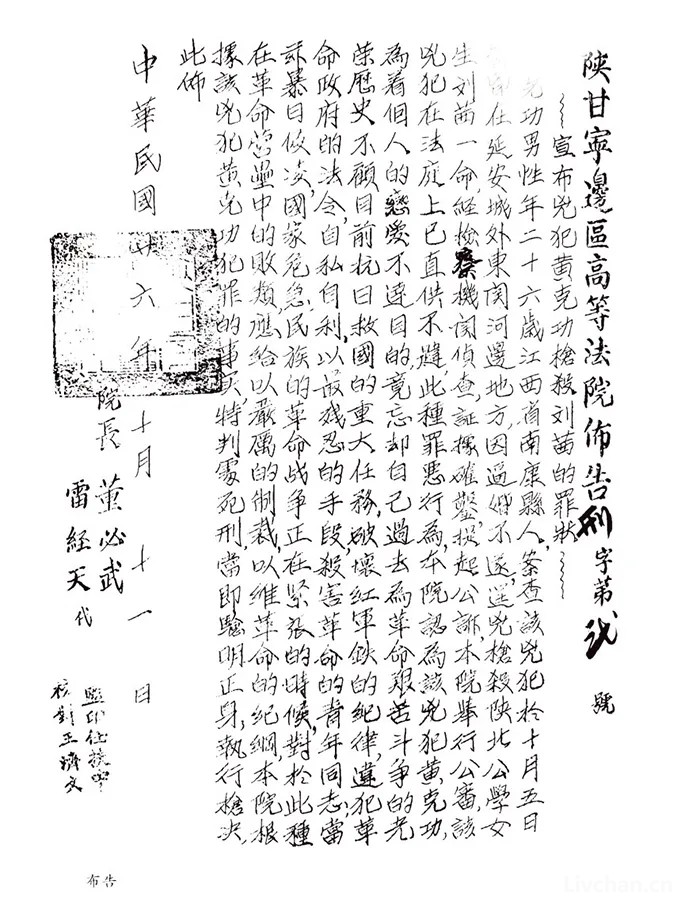 陝甘寧邊區高等法院佈告刑字第 號
宣布兇犯黃克功槍殺刘茜的罪狀
克功男性年二十六歲江西省南康縣人,案查該兇犯於十月五日
在延安城外東関河邊地方,因逼婚不遂,逞兇槍殺陝北公學女
生刘茜一命,經檢察機関偵查証據確鑿,提起公訴,本院舉行公審,該
兇犯在法庭上已直供不諱,此種罪惡行為,本院認為該兇犯黃克功,
為着個人的戀愛不達目的,竟忘却自己過去為革命艱苦斗争的光
荣歷史不顧目前抗日救國的重大任務,破壞红軍鉄的紀律,違犯革
命政府的法令,自私自利,以最残忍的手段,殺害革命的青年同志,當
茲暴日侵凌,國家危急,民族的革命战争正在紧張的時候,對於此種
在革命营壘中的敗類,應給以嚴厲的制裁,以維革命的纪綱,本院根
據該兇犯黃克功犯罪的事实,特判處死刑,當即驗明正身,執行槍决,
此佈
中華民國廿六年十月十一日
院長 董必武
雷經天代
監印任扶
校對王濟文
布告
Livchan.cn